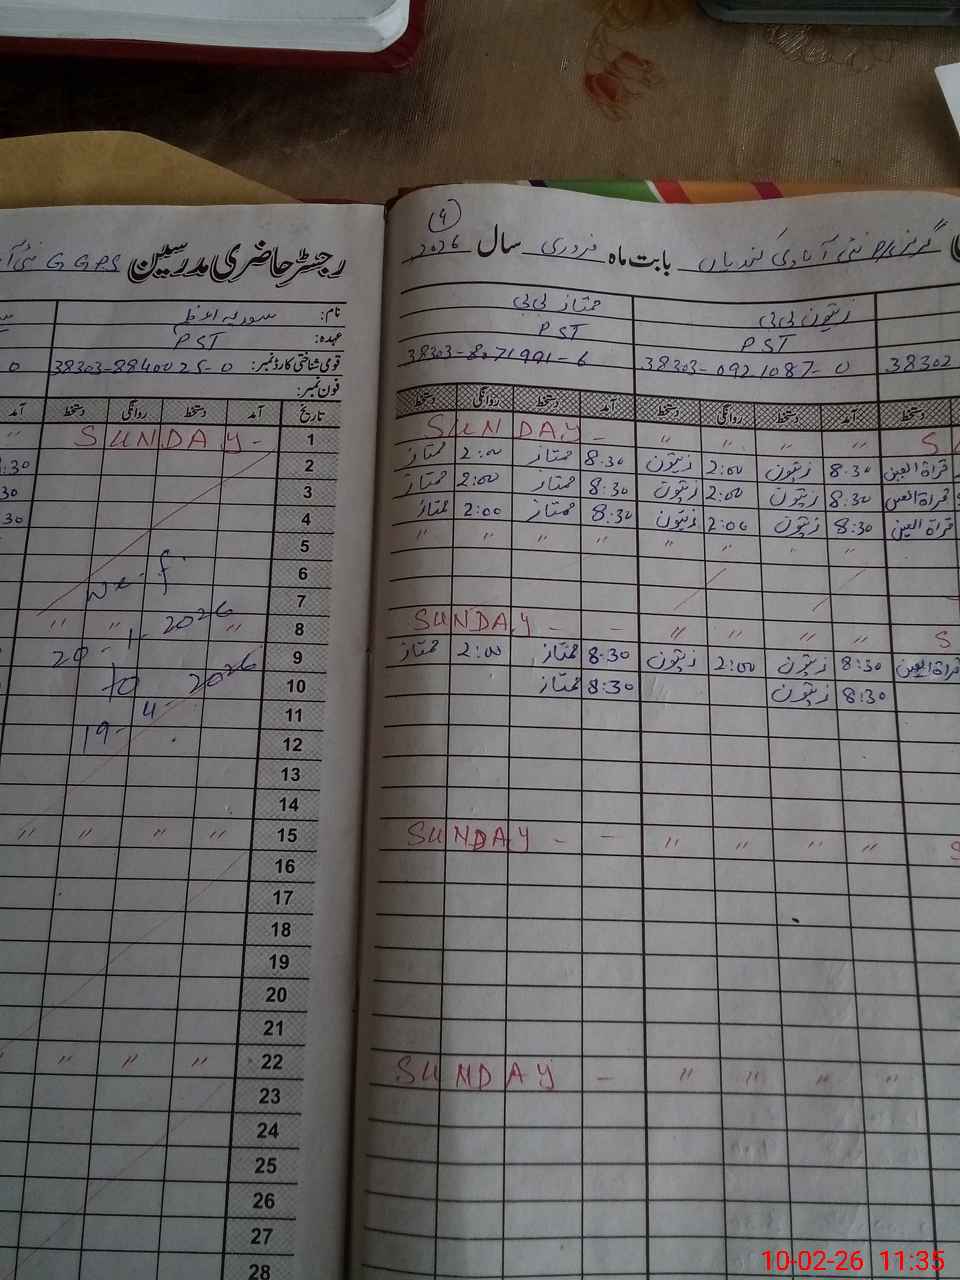 رجسٹر حاضری مدرسین G GPS
نام: سعدیہ اعظم
عہدہ: PST
قومی شناختی کارڈ نمبر: 38303-8840025-0
فون نمبر:
تاریخ آمد دستخط روانگی دستخط آمد
1 SUNDAY - "
2 8:30
3 30
4 30
5
6
7
8 " " " "
9
10
11
12
13
14
15 " " " "
16
17
18
19
20
21
22 " " "
23
24
25
26
27
28
w.e.f
20-1-2026
to
19-4-2026
(4)
نئی آبادی کندیاں بابت ماہ فروری سال 2026
زیتون بی بی ممتاز بی بی
PST PST
38302 38303-0921087-0 38303-8071991-6
دستخط آمد دستخط روانگی دستخط آمد دستخط روانگی دستخط
S " " " " SUNDAY -
قراۃ العین 8:30 زیتون 2:00 زیتون 8:30 ممتاز 2:00 ممتاز
قراۃ العین 8:30 زیتون 2:00 زیتون 8:30 ممتاز 2:00 ممتاز
قراۃ العین 8:30 زیتون 2:00 زیتون 8:30 ممتاز 2:00 ممتاز
" " " " " " " "
S " " " " SUNDAY - -
قراۃ العین 8:30 زیتون 2:00 زیتون 8:30 ممتاز 2:00 ممتاز
8:30 زیتون 8:30 ممتاز
S " " " " SUNDAY - -
" " " " SUNDAY -
10-02-26 11:35